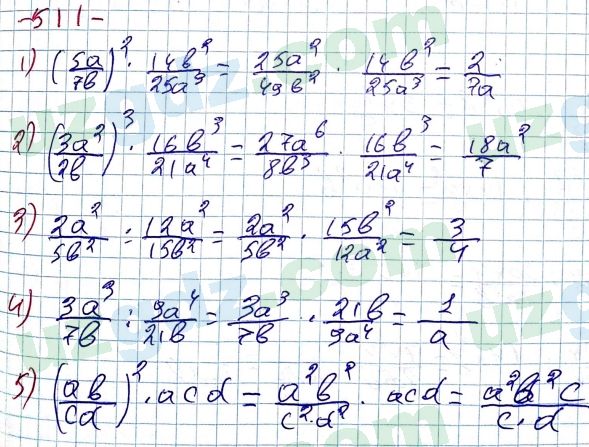 -511-
1) (5a/7b)² · 14b²/25a³ = 25a²/49b² · 14b²/25a³ = 2/7a
2) (3a²/2b)³ · 16b³/21a⁴ = 27a⁶/8b³ · 16b³/21a⁴ = 18a²/7
3) 2a²/5b² : 12a²/15b² = 2a²/5b² · 15b²/12a² = 3/4
4) 3a³/7b : 9a⁴/21b = 3a³/7b · 21b/9a⁴ = 1/a
5) (ab/cd)² · acd = a²b²/c²·d² · acd =